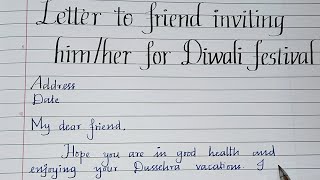 Letter to friend inviting
him/her for Diwali festival
Address
Date
My dear friend,
Hope you are in good health and
enjoying your Dussehra vacations. I